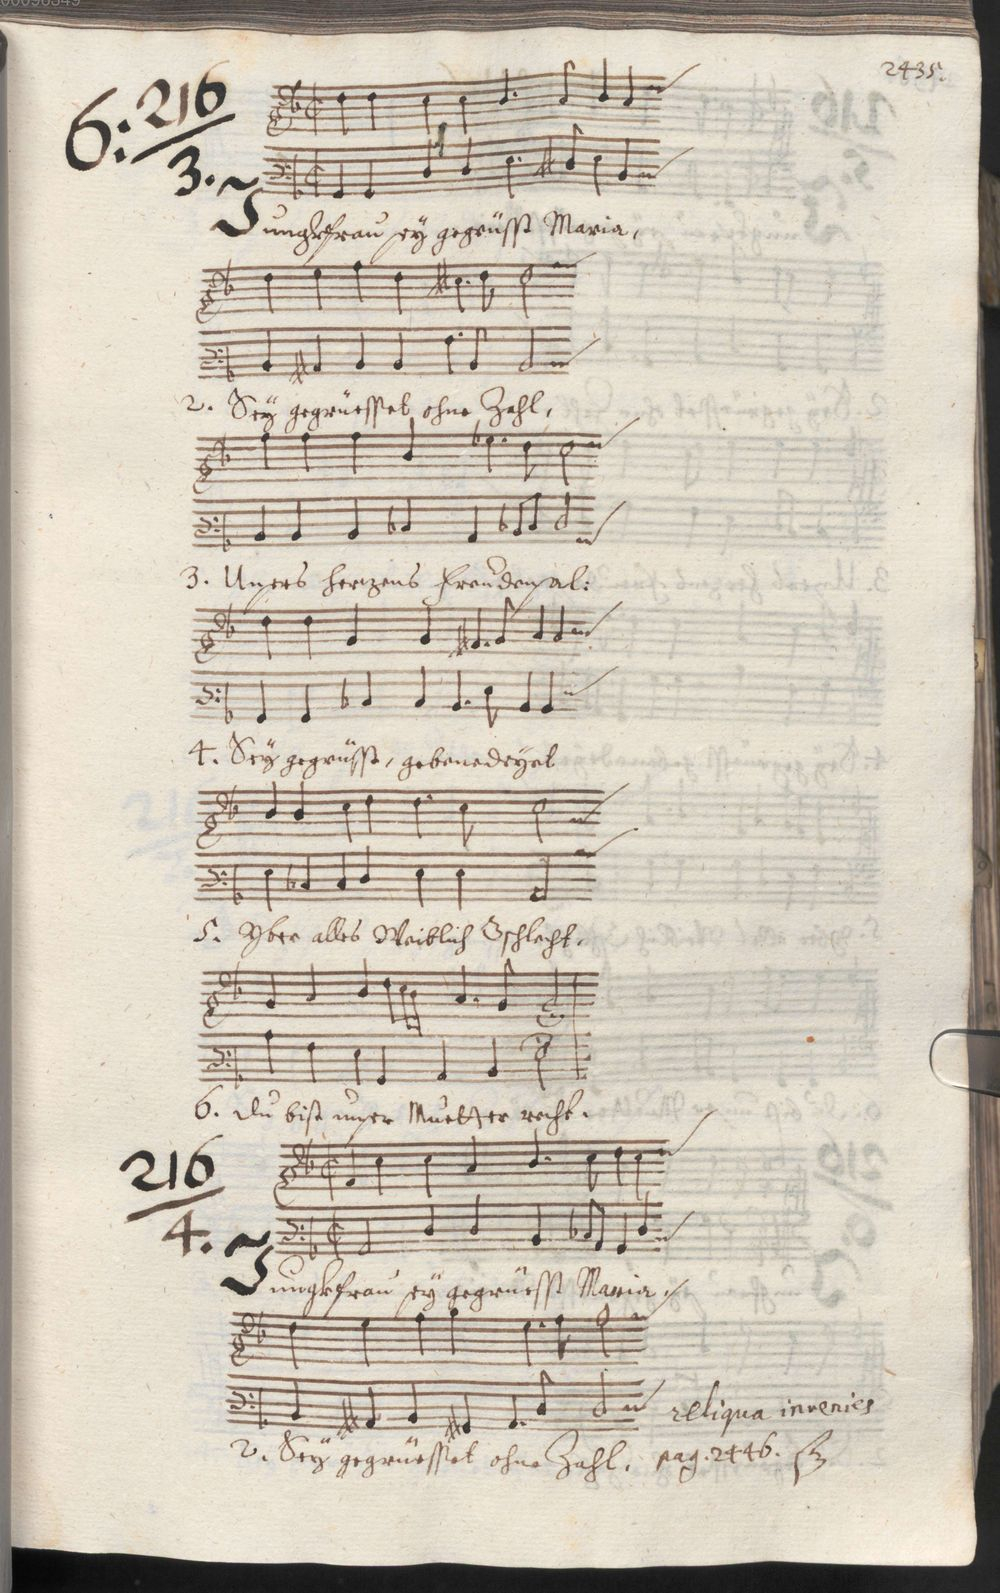 00098549
2435.
6: 216
3.
Jungkfrau sey gegrüsst Maria,
2. Sey gegrüesset ohne Zahl,
3. Unsers herzens freudensal:
4. Sey gegrüsst, gebenedeyet
5. Yber alles Weiblich Gschlecht.
6. du bist unser Muetter recht.
216
4.
Jungkfrau sey gegrüesst Maria,
reliqua invenies
2. Sey gegrüesset ohne Zahl, pag. 2446.